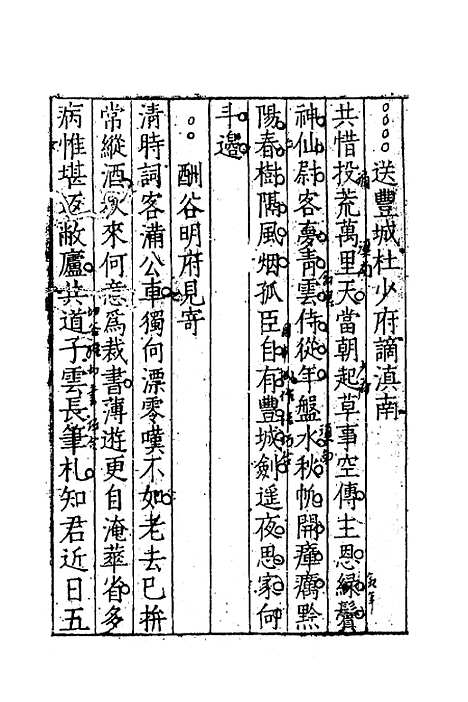 送豐城杜少府謫滇南
共惜投荒萬里天當朝起草事空傳主恩綠鬢
神仙尉客夢青雲侍從年盤水秋帆開瘴癘黔
陽春樹隔風烟孤臣自有豐城劍遥夜思家向
斗邊
酬谷明府見寄
清時詞客滿公車獨何漂零嘆不如老去已拚
常縱酒秋來何意爲裁書薄遊更自淹華省多
病惟堪返敝廬共道子雲長筆札知君近日五